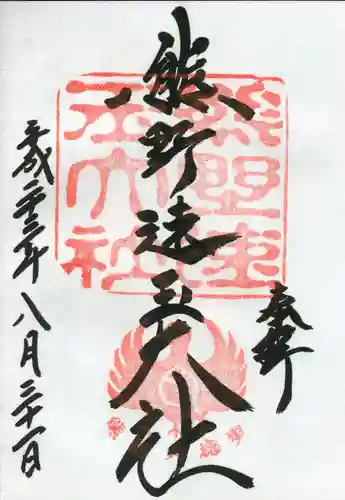 奉拝
熊野速玉大社
熊野速
玉大社
平成二十三年八月二十一日